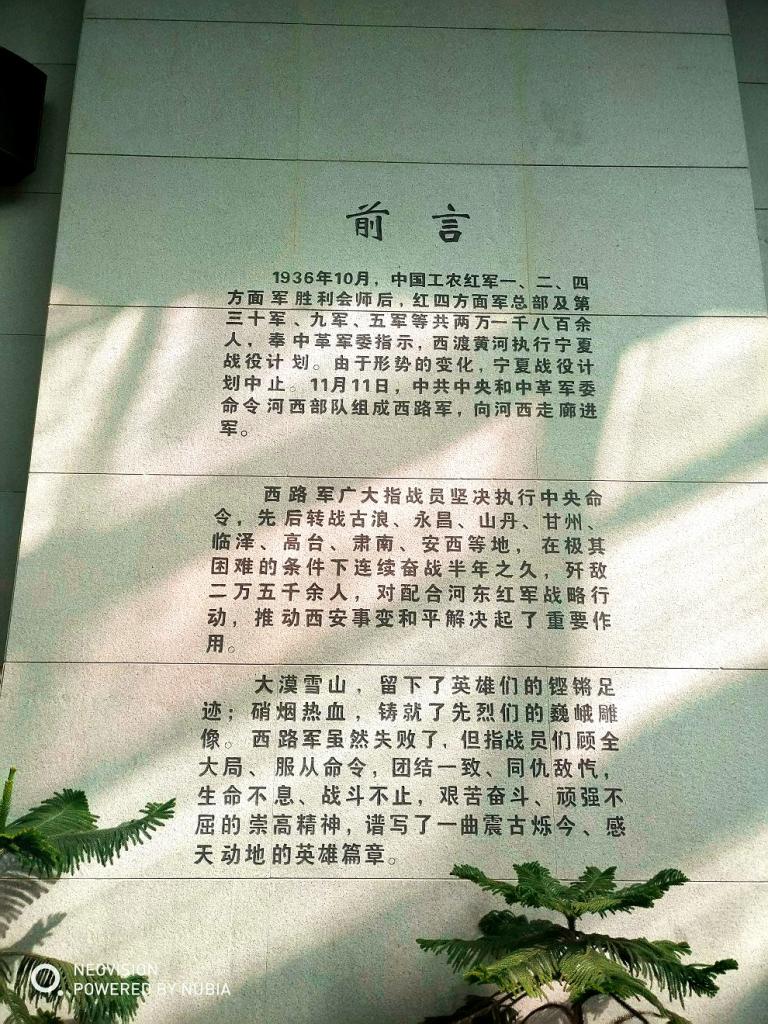 前言
1936年10月，中国工农红军一、二、四
方面军胜利会师后，红四方面军总部及第
三十军、九军、五军等共两万一千八百余
人，奉中革军委指示，西渡黄河执行宁夏
战役计划。由于形势的变化，宁夏战役计
划中止。11月11日，中共中央和中革军委
命令河西部队组成西路军，向河西走廊进
军。
西路军广大指战员坚决执行中央命
令，先后转战古浪、永昌、山丹、甘州、
临泽、高台、肃南、安西等地，在极其
困难的条件下连续奋战半年之久，歼敌
二万五千余人，对配合河东红军战略行
动，推动西安事变和平解决起了重要作
用。
大漠雪山，留下了英雄们的铿锵足
迹；硝烟热血，铸就了先烈们的巍峨雕
像。西路军虽然失败了，但指战员们顾全
大局、服从命令，团结一致、同仇敌忾，
生命不息、战斗不止，艰苦奋斗、顽强不
屈的崇高精神，谱写了一曲震古烁今、感
天动地的英雄篇章。
NEOVISION
POWERED BY NUBIA